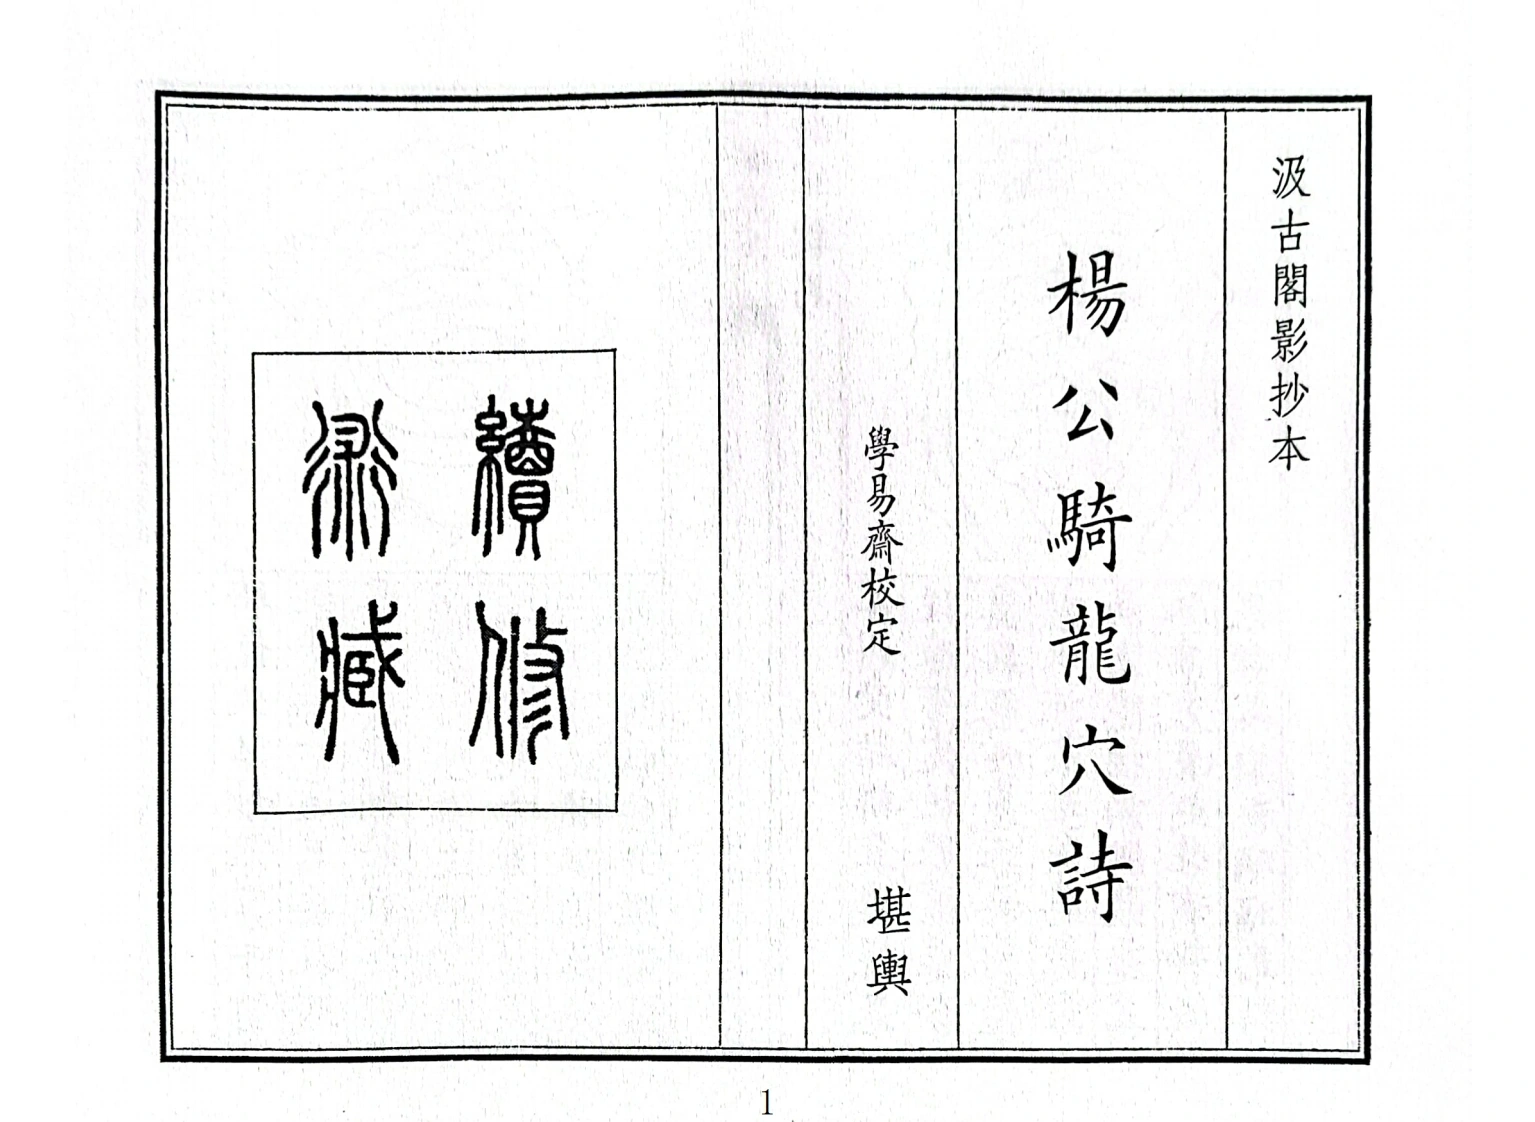 汲古閣影抄本
楊公騎龍穴詩
學易齋校定
堪輿
續修
術藏
1